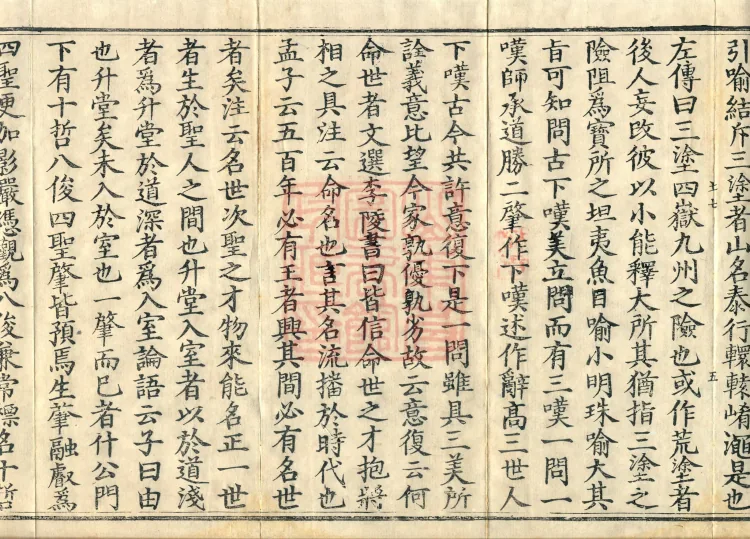 引喻結斥三塗者山名泰行轘轅崤澠是也
左傳曰三塗四嶽九州之險也或作荒塗者
後人妄改彼以小能釋大所其猶指三塗之
險阻為寶所之坦夷魚目喻小明珠喻大其
旨可知問古下嘆美立問而有三嘆一問一
嘆師承道勝二肇作下嘆述作辭高三世人
下嘆古今共許意復下是一問雖具三美所
詮義意比望今家孰優孰劣故云意復云何
命世者文選李陵書曰皆信命世之才抱將
相之具注云命名也言其名流播於時代也
孟子云五百年必有王者興其間必有名世
者矣注云名世次聖之才物來能名正一世
者生於聖人之間也升堂入室者以於道淺
者為升堂於道深者為入室論語云子曰由
也升堂矣未入於室也一肇而已者什公門
下有十哲八俊四聖肇皆預焉生肇融叡為
四聖更加影嚴憑觀為八俊兼常標名十哲